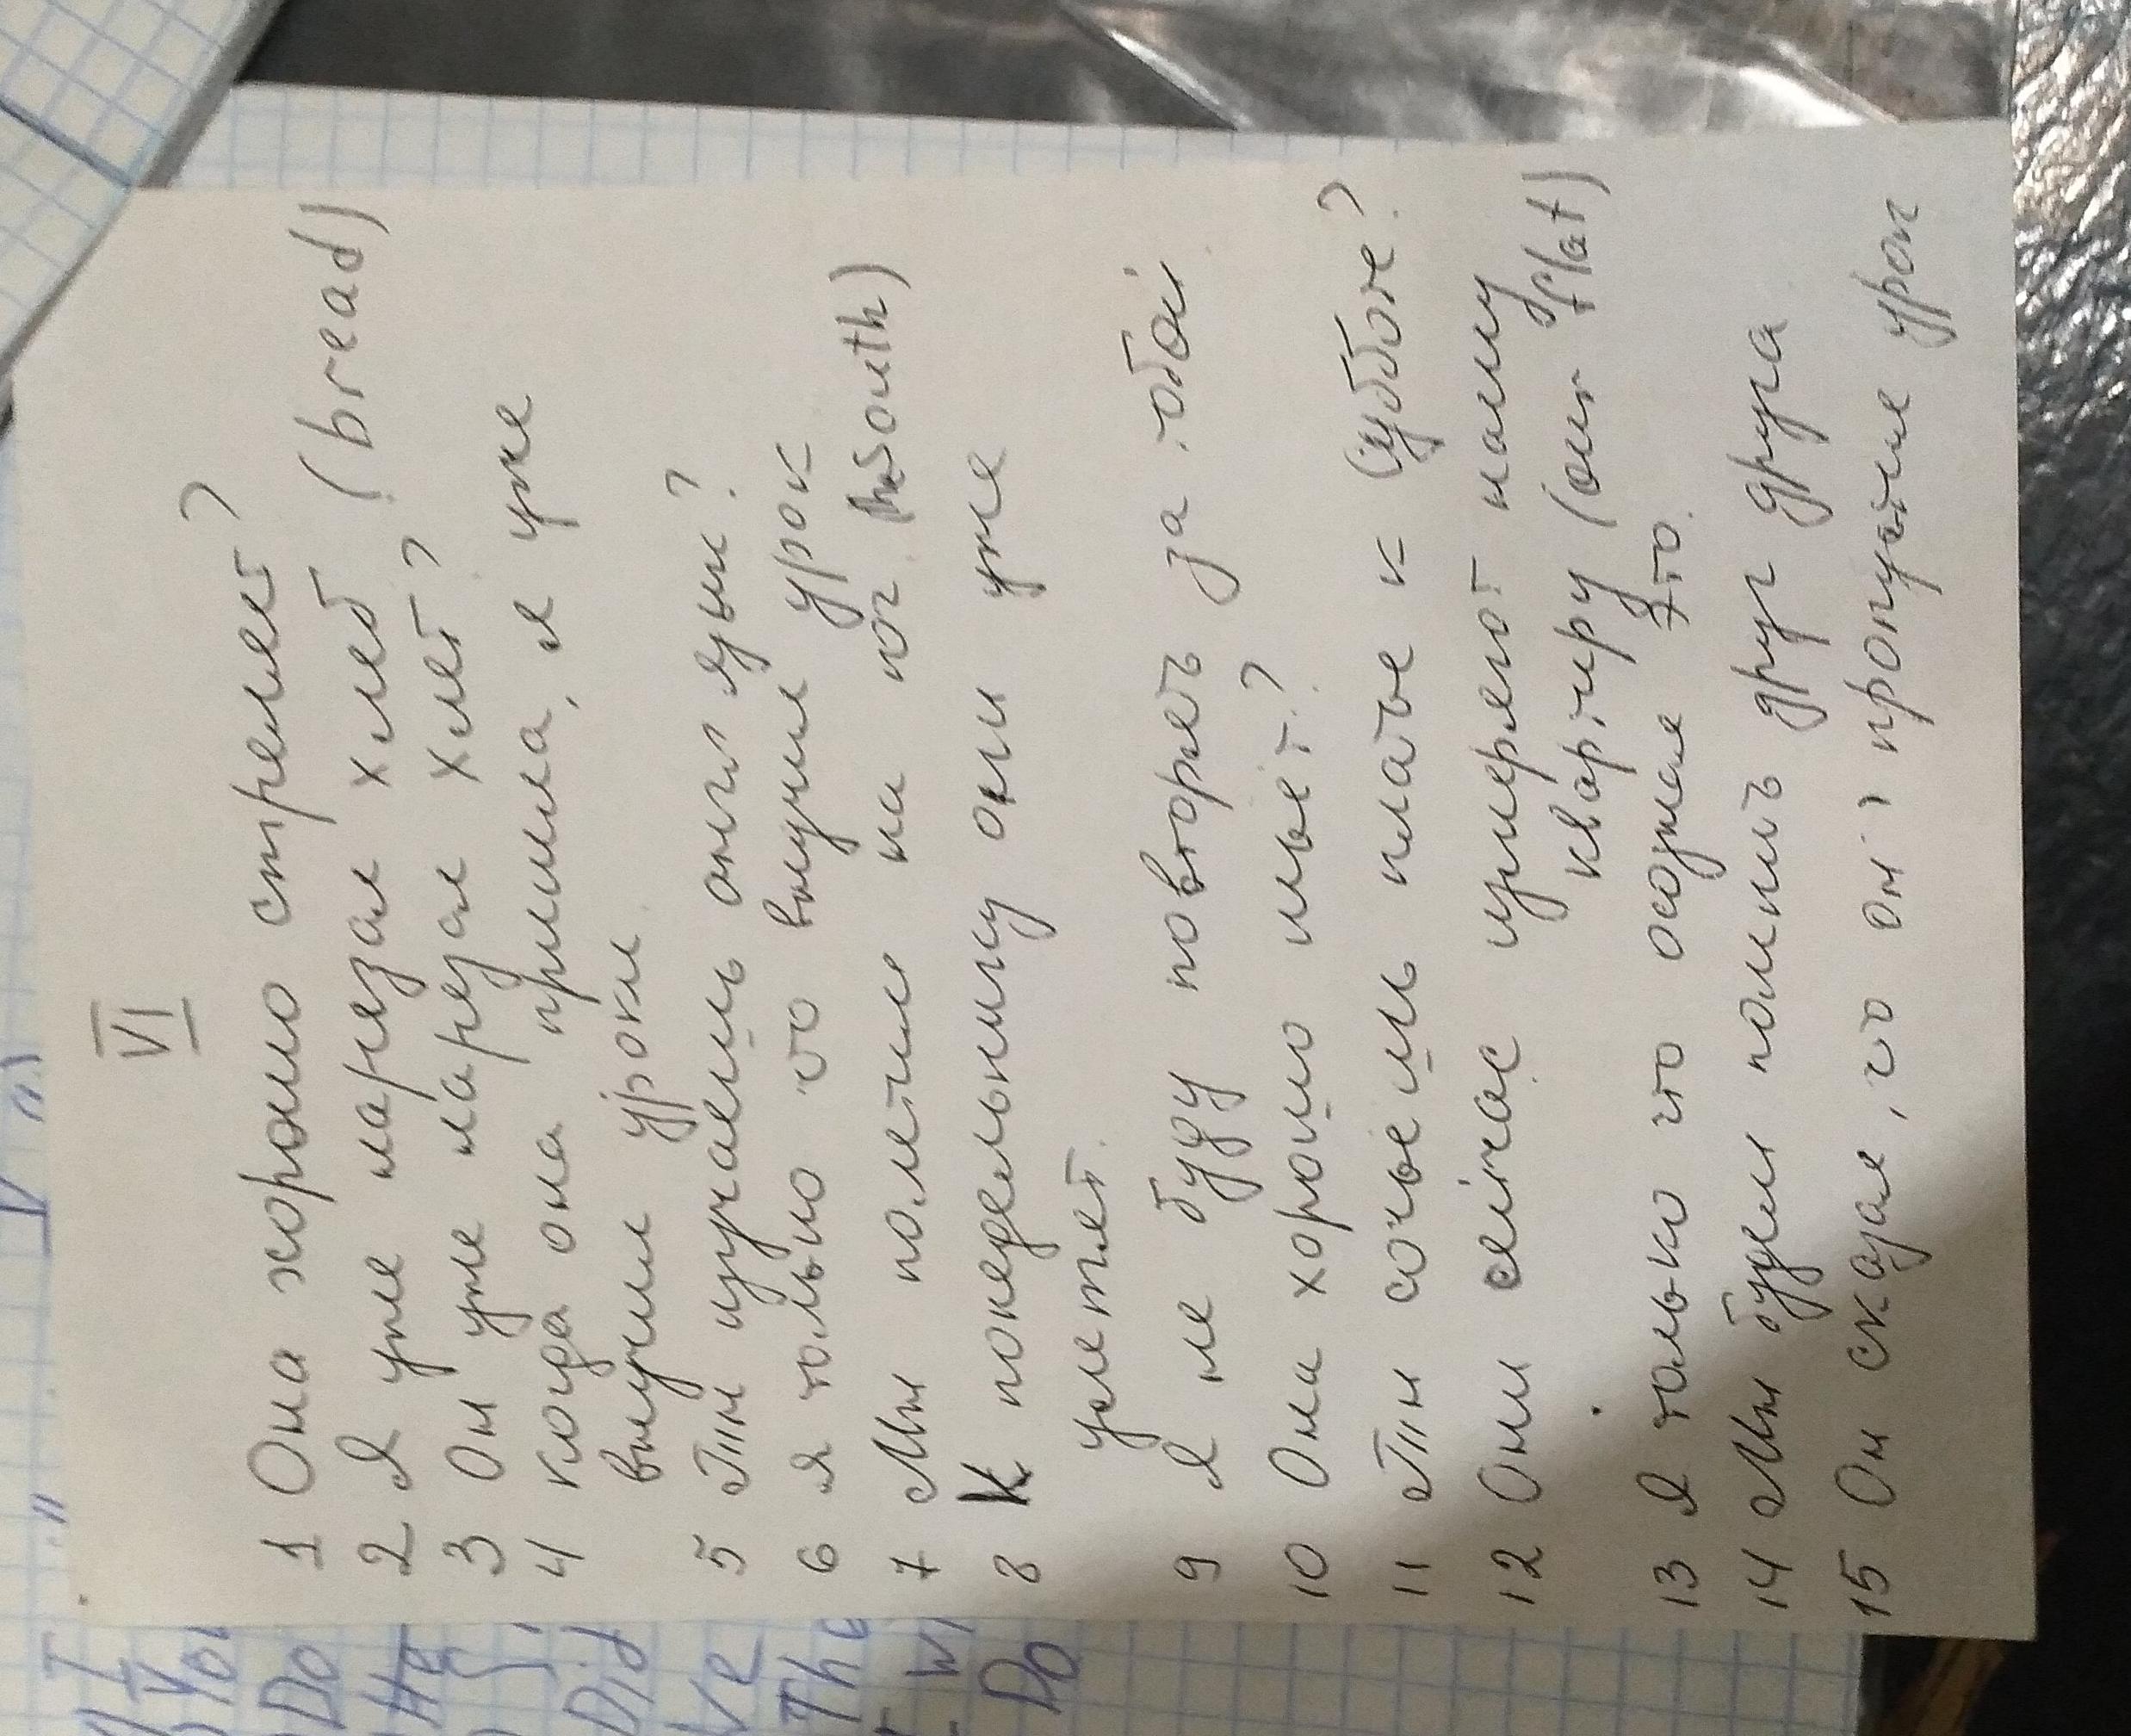 VI
1 Она хорошо стреляет?
2 Я уже нарезал хлеб (bread)
3 Он уже нарезал хлеб?
4 когда она пришла, я уже
выучил уроки.
5 Ты изучаешь англ язык?
6 я только что выучил урок
7 Мы полетим на юг (the South)
8 К понедельнику они уже
улетят.
9 Я не буду повторять за тобой
10 Она хорошо шьёт?
11 Ты сошьешь платье к субботе?
12 Они сейчас измеряют нашу
квартиру (our flat)
13 Я только что осознал это.
14 Мы будем помнить друг друга
15 Он сказал, что он пропустил урок
V
"
I
You
Do
He
Did
Ve
The
Do